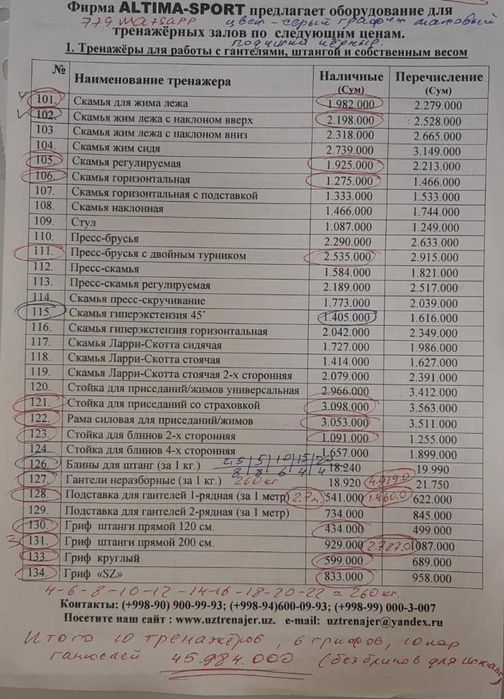 Фирма ALTIMA-SPORT предлагает оборудование для
779 Watsapp цвет - серый графит матовый
тренажёрных залов по следующим ценам.
подушки чёрные.
1. Тренажёры для работы с гантелями, штангой и собственным весом
№ Наименование тренажера Наличные (Сум) Перечисление (Сум)
101. Скамья для жима лежа 1.982.000 2.279.000
102. Скамья жим лежа с наклоном вверх 2.198.000 2.528.000
103 Скамья жим лежа с наклоном вниз 2.318.000 2.665.000
104. Скамья жим сидя 2.739.000 3.149.000
105. Скамья регулируемая 1.925.000 2.213.000
106. Скамья горизонтальная 1.275.000 1.466.000
107. Скамья горизонтальная с подставкой 1.333.000 1.533.000
108. Скамья наклонная 1.466.000 1.744.000
109. Стул 1.087.000 1.249.000
110. Пресс-брусья 2.290.000 2.633.000
111. Пресс-брусья с двойным турником 2.535.000 2.915.000
112. Пресс-скамья 1.584.000 1.821.000
113. Пресс-скамья регулируемая 2.189.000 2.517.000
114. Скамья пресс-скручивание 1.773.000 2.039.000
115. Скамья гиперэкстензия 45˚ 1.405.000 1.616.000
116. Скамья гиперэкстензия горизонтальная 2.042.000 2.349.000
117. Скамья Ларри-Скотта сидячая 1.727.000 1.986.000
118. Скамья Ларри-Скотта стоячая 1.414.000 1.627.000
119. Скамья Ларри-Скотта стоячая 2-х сторонняя 2.079.000 2.391.000
120. Стойка для приседаний/жимов универсальная 2.966.000 3.412.000
121. Стойка для приседаний со страховкой 3.098.000 3.563.000
122. Рама силовая для приседаний/жимов 3.053.000 3.511.000
123. Стойка для блинов 2-х сторонняя 1.091.000 1.255.000
124. Стойка для блинов 4-х сторонняя 1.657.000 1.899.000
126. Блины для штанг (за 1 кг.) 18.240 19.990
127. Гантели неразборные (за 1 кг.) 260 кг 18.920 21.750
128. Подставка для гантелей 1-рядная (за 1 метр) 541.000 622.000
129. Подставка для гантелей 2-рядная (за 1 метр) 734.000 845.000
130. Гриф штанги прямой 120 см. 434.000 499.000
3 131. Гриф штанги прямой 200 см. 929.000 2.787.0 1087.000
133. Гриф круглый 599.000 689.000
134. Гриф «SZ» 833.000 958.000
4-6-8-10-12-14-16-18-20-22 = 260 кг.
Контакты: (+998-90) 900-99-93; (+998-94)600-09-93; (+998-99) 000-3-007
Посетите наш сайт : www.uztrenajer.uz. e-mail: uztrenajer@yandex.ru
Итого 10 тренажёров, 6 грифов, 10 пар
гантелей 45.984.000 (без блинов для штанг)